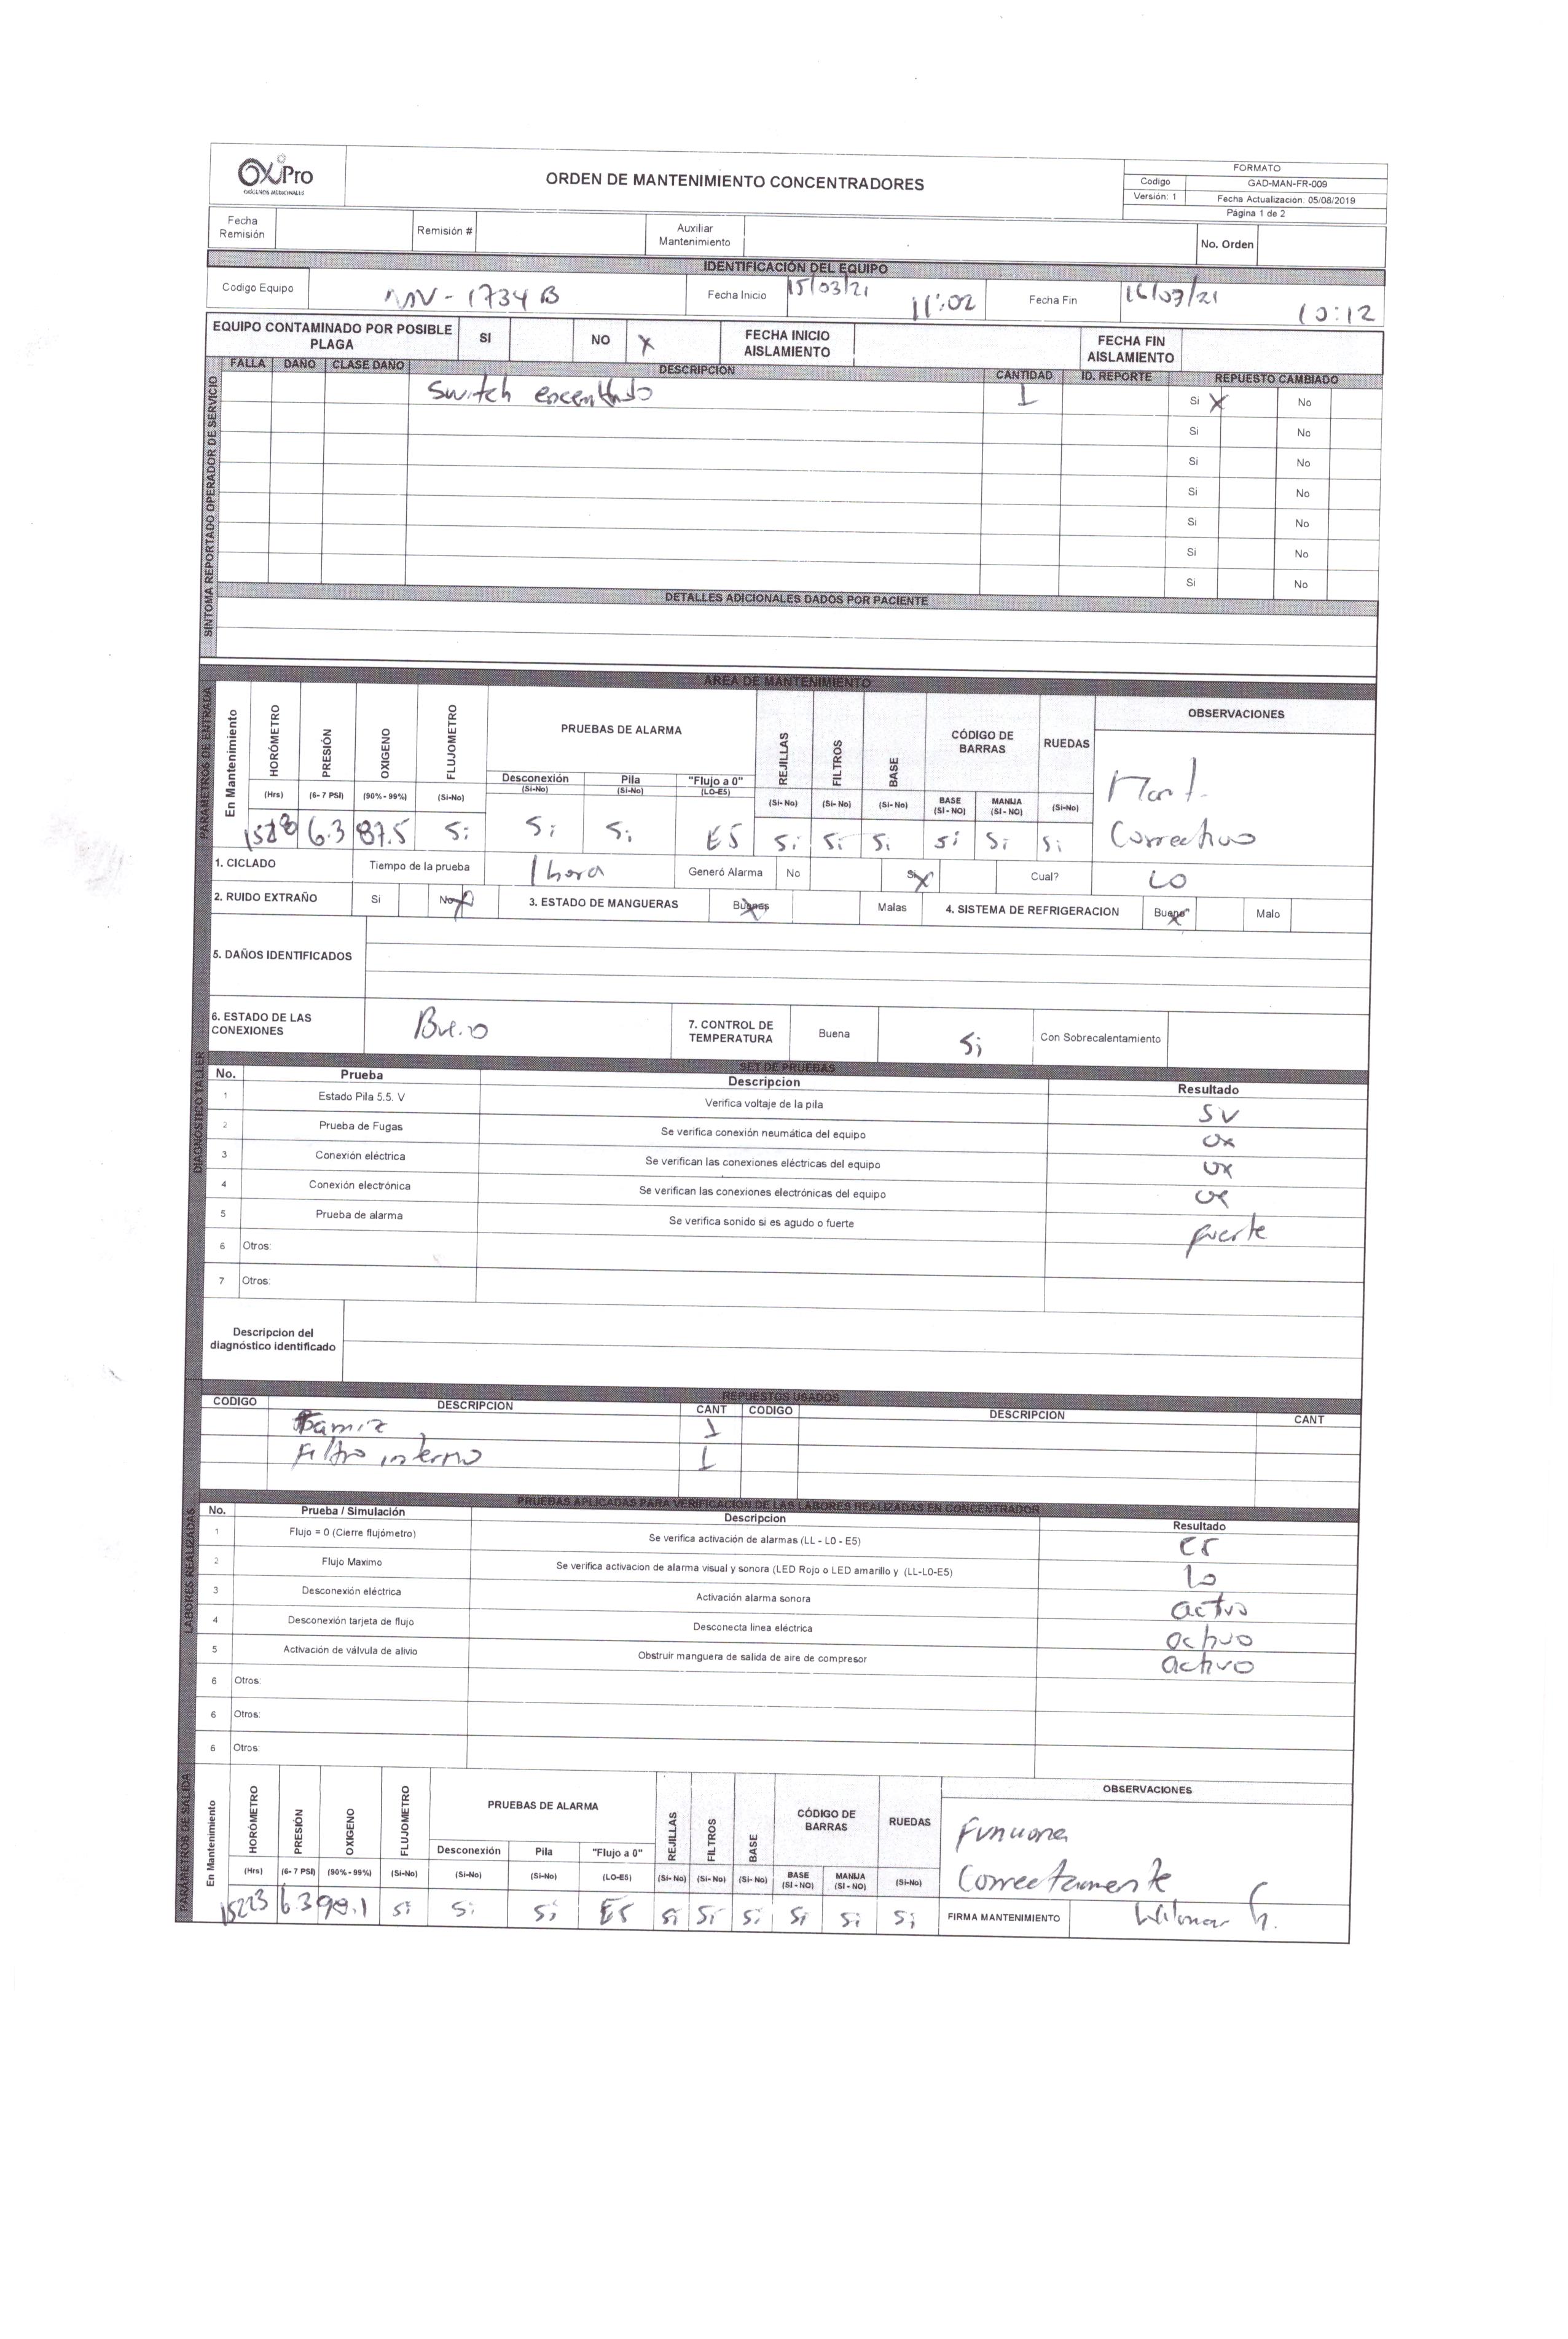 OXiPro
OXÍGENOS MEDICINALES
ORDEN DE MANTENIMIENTO CONCENTRADORES
FORMATO
Codigo GAD-MAN-FR-009
Versión: 1 Fecha Actualización: 05/08/2019
Página 1 de 2
Fecha Remisión Remisión # Auxiliar Mantenimiento No. Orden
IDENTIFICACIÓN DEL EQUIPO
Codigo Equipo 1734 B Fecha Inicio 15/03/21 11:02 Fecha Fin 16/03/21 10:12
EQUIPO CONTAMINADO POR POSIBLE PLAGA SI NO X FECHA INICIO AISLAMIENTO FECHA FIN AISLAMIENTO
SINTOMA REPORTADO OPERADOR DE SERVICIO
FALLA DAÑO CLASE DAÑO DESCRIPCION CANTIDAD ID. REPORTE REPUESTO CAMBIADO
Switch 1 Si X No
Si No
Si No
Si No
Si No
Si No
Si No
DETALLES ADICIONALES DADOS POR PACIENTE
AREA DE MANTENIMIENTO
PARAMETROS DE ENTRADA
En Mantenimiento HORÓMETRO PRESIÓN OXIGENO FLUJOMETRO PRUEBAS DE ALARMA REJILLAS FILTROS BASE CÓDIGO DE BARRAS RUEDAS OBSERVACIONES
Desconexión Pila "Flujo a 0"
(Hrs) (6- 7 PSI) (90% - 99%) (Si-No) (Si-No) (Si-No) (LO-E5) (Si- No) (Si- No) (Si- No) BASE (SI - NO) MANIJA (SI - NO) (Si-No)
6.3 87.5 Si Si Si E5 Si Si Si Si Si Si Mant. Correctivo
1. CICLADO Tiempo de la prueba 1 hora Generó Alarma No Si X Cual? LO
2. RUIDO EXTRAÑO Si No X 3. ESTADO DE MANGUERAS Buenas X Malas 4. SISTEMA DE REFRIGERACION Bueno X Malo
5. DAÑOS IDENTIFICADOS
6. ESTADO DE LAS CONEXIONES Bueno 7. CONTROL DE TEMPERATURA Buena Si Con Sobrecalentamiento
DIAGNOSTICO TALLER
SET DE PRUEBAS
No. Prueba Descripcion Resultado
1 Estado Pila 5.5. V Verifica voltaje de la pila 5V
2 Prueba de Fugas Se verifica conexión neumática del equipo ok
3 Conexión eléctrica Se verifican las conexiones eléctricas del equipo ok
4 Conexión electrónica Se verifican las conexiones electrónicas del equipo ok
5 Prueba de alarma Se verifica sonido si es agudo o fuerte fuerte
6 Otros:
7 Otros:
Descripcion del diagnóstico identificado
REPUESTOS USADOS
CODIGO DESCRIPCION CANT CODIGO DESCRIPCION CANT
Tamiz 1
Filtro interno 1
LABORES REALIZADAS
PRUEBAS APLICADAS PARA VERIFICACION DE LAS LABORES REALIZADAS EN CONCENTRADOR
No. Prueba / Simulación Descripcion Resultado
1 Flujo = 0 (Cierre flujómetro) Se verifica activación de alarmas (LL - L0 - E5) E5
2 Flujo Maximo Se verifica activacion de alarma visual y sonora (LED Rojo o LED amarillo y (LL-L0-E5) Lo
3 Desconexión eléctrica Activación alarma sonora activo
4 Desconexión tarjeta de flujo Desconecta linea eléctrica activo
5 Activación de válvula de alivio Obstruir manguera de salida de aire de compresor activo
6 Otros:
6 Otros:
6 Otros:
PARAMETROS DE SALIDA
En Mantenimiento HORÓMETRO PRESIÓN OXIGENO FLUJOMETRO PRUEBAS DE ALARMA REJILLAS FILTROS BASE CÓDIGO DE BARRAS RUEDAS OBSERVACIONES
Desconexión Pila "Flujo a 0"
(Hrs) (6- 7 PSI) (90% - 99%) (Si-No) (Si-No) (Si-No) (LO-E5) (Si- No) (Si- No) (Si- No) BASE (SI - NO) MANIJA (SI - NO) (Si-No)
15223 6.3 Si Si Si E5 Si Si Si Si Si Si Funciona Correctamente
FIRMA MANTENIMIENTO Wilmar G.